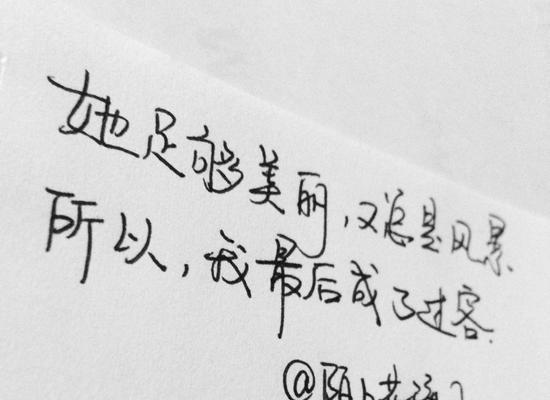 她足够美丽，又总是风景
所以，我最后成了过客.
@陌上花